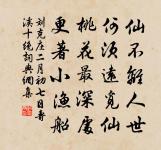 仙不離人世
何須遠覓仙
桃花最深處
更著小漁船
劉克庄二月初七日壽
溪十絕詞典網集